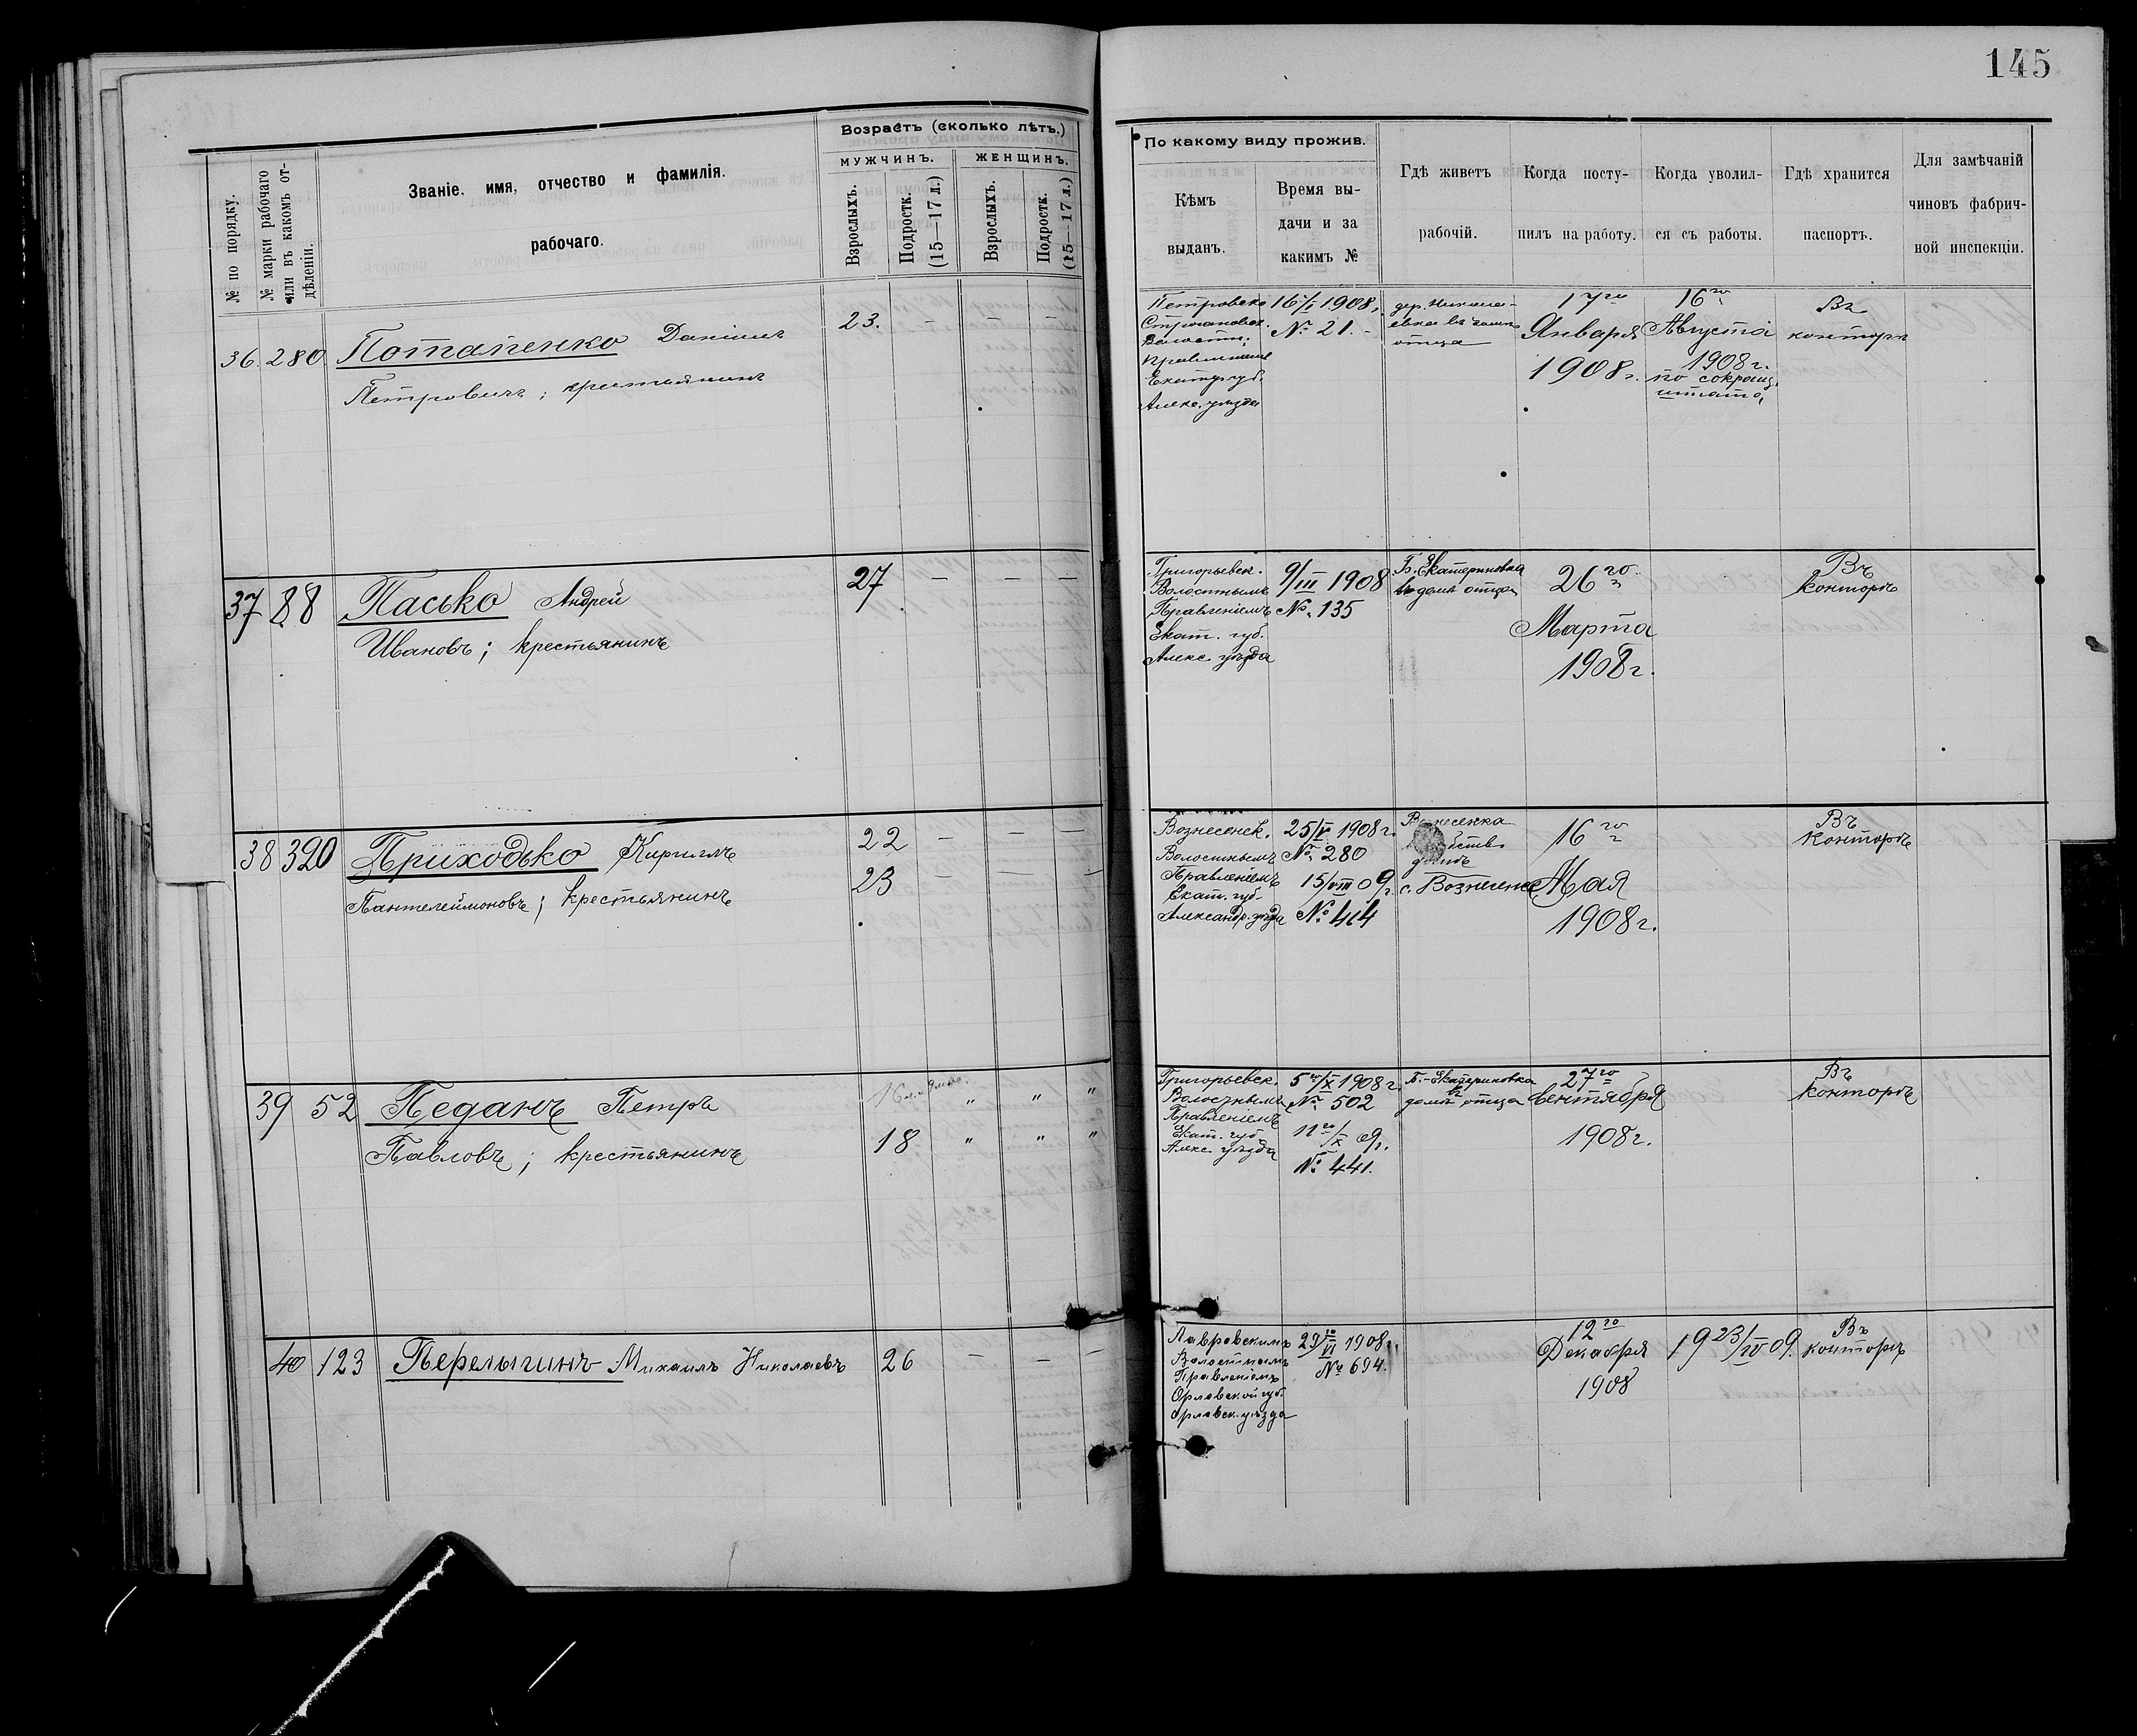 145
Возрастъ (сколько лѣтъ.)
МУЖЧИНЪ. ЖЕНЩИНЪ.
№ по порядку.
№ марки рабочаго
или въ какомъ от-
дѣленіи.
Званіе. имя, отчество и фамилія.
рабочаго.
Взрослыхъ.
Подростк.
(15—17 л.)
Взрослыхъ.
Подростк.
(15—17 л.)
По какому виду прожив.
Кѣмъ
выданъ.
Время вы-
дачи и за
какимъ №
Гдѣ живетъ
рабочій.
Когда посту-
пилъ на работу.
Когда уволил-
ся съ работы.
Гдѣ хранится
паспортъ.
Для замѣчаній
чиновъ фабрич-
ной инспекціи.
36. 280 Потапенко Даніилъ
Петровичъ; крестьянинъ
23. — — —
Петровско
Волостн.
Екатер. губ.
Алекс. уѣзда
16/I 1908,
№ 21. -
отца
17го
Января
1908 г.
16го
Августа
1908 г.
по сокращ.
штата,
Въ
конторѣ
37 88 Пасько Андрей
Ивановъ; крестьянинъ
27 — — —
Григорьевск.
Волостнымъ
Правленіемъ
Екат. губ.
Алекс. уѣзда
9/III 1908
№ 135
Б. Екатериновка
въ домѣ отца
26го
Марта
1908 г.
Въ
конторѣ
38 320 Приходько Кириллъ
Пантелеймоновъ; крестьянинъ
22 — — —
23 — — —
Вознесенск.
Волостнымъ
Правленіемъ
Екат. губ.
Александр. уѣзда
25/V 1908 г.
№ 280
15/VIII 09 г.
№ 414
с. Вознесенка
16го
Мая
1908 г.
Въ
конторѣ
39 52 Педанъ Петръ
Павловъ; крестьянинъ
16 " " "
18 " " "
Григорьевск.
Волостнымъ
Правленіемъ
Екат. губ
Алекс. уѣзда
5го/IX 1908 г.
№ 502
11го/X 09 г.
№ 441.
Б.-Екатериновка
въ
домѣ отца
27го
Сентября
1908 г.
Въ
конторѣ
40 123 Перелыгинъ Михаилъ Николаевъ
26 — — —
Лавровскимъ
Волостнымъ
Правленіемъ
Орловской губ.
Орловск. уѣзда
23го/VI 1908 г.
№ 694.
12го
Декабря
1908
19 23/IV 09.
Въ
конторѣ